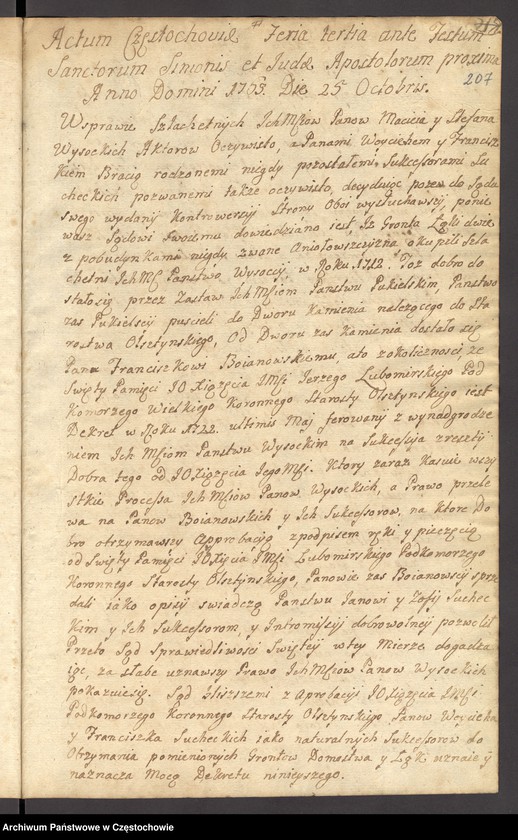 Actum Częstochoviæ Feria tertia ante Festum
Sanctorum Simonis et Judæ Apostolorum proxima
Anno Domini Die 25 Octobris.
207
Wsprawie Szlachetnych IchMściow Panow Macieia y Stefana
Wysockich Aktorow Oczywisto, z Panami Woyciechem y Francisz
kiem Bracią rodzonemi niegdy pozostałemi Sukcessorami Su
checkich pozwanemi także oczywisto, decyduiąc pozew do Sądu
swego wydany Kontrowersyi Strony Oboi wysłuchawszy, ponie
wasz Sądowi swoiemu dowiedziano iest Iż Gronta Łąki dwie
z pobudynkami niegdy zwane Aniołowszczyzna okupieli Szla
chetni IchMć Państwo Wysoccy w Roku 1712. Toż dobro do
stało się przez Zastaw IchMściom Państwu Pukielskim, Państwo
zas Pukielscy puscieli do Dworu Kamienia należącego do Sta
rostwa Olsztynskiego, Od Dworu zas Kamienia dostało się
Panu Franciszkowi Boianowskiemu, ato zokoliczności, że
Swięty Pamięci JO Xiążęcia JMści Jerzego Lubomirskiego Pod
Komorzego Wielkiego Koronnego Starosty Olsztynskiego iest
Dekret w Roku 1722. ultimis Maj ferowany z wynadgrodze
niem Ich Mściom Panstwu Wysockim na Sukcessyą zreszty
Dobra tego od JO Xiążęcia JegoMści. Ktory zaraz Kasuie wszy
stkie Processa Ich Mściow Panow Wysockich, a Prawo przele
wa na Panow Boianowskich y Ich Sukcessorow, na Ktore Do
bro otrzymawszy Approbacyą zpodpisem ręki y pieczęcią
od Swięty Pamięci JO Xięcia JMści Lubomirskiego Podkomorzego
Koronnego Starosty Olsztynskiego, Panowie zas Boianowscy sprze
dali iako opisy swiadczą Panstwu Janowi y Zofij Suchec
kim y Ich Sukcessorom, y Intromissyi dobrowolney pozwolił
Przeto Sąd Sprawiedliwości Swiętey wtey Mierze dogadza
iąc, za słabe uznawszy Prawo IchMściow Panow Wysockich
pokazuiesię. Sąd z Aprobacyi JO Xiążęcia JMści
Podkomorzego Koronnego Starosty Olsztynskiego, Panow Woyciecha
y Franciszka Sucheckich iako naturalnych Sukcessorow do
Otrzymania pomienionych Grontow Domostwa y Łąk uznaie y
naznacza Mocą Dekretu ninieyszego.
Archiwum Państwowe w Częstochowie